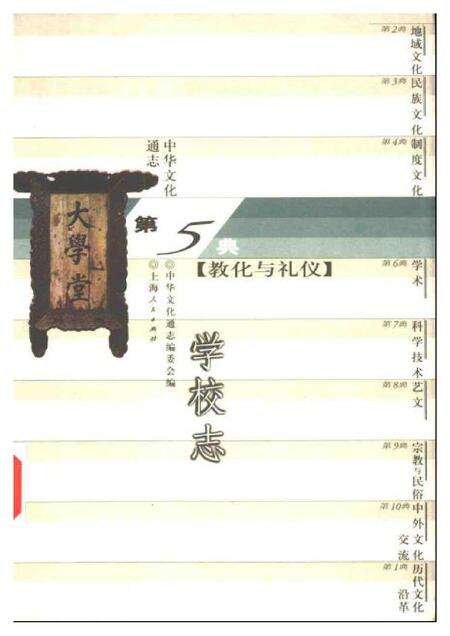 第2典
地域文化
第3典
民族文化
第4典
制度文化
中华文化
通志
大學堂
第5典
【教化与礼仪】
◎中华文化通志编委会编
◎上海人民出版社
学校志
第6典
学术
第7典
科学技术
第8典
艺文
第9典
宗教与民俗
第10典
中外文化
交流
第1典
历代文化
沿革